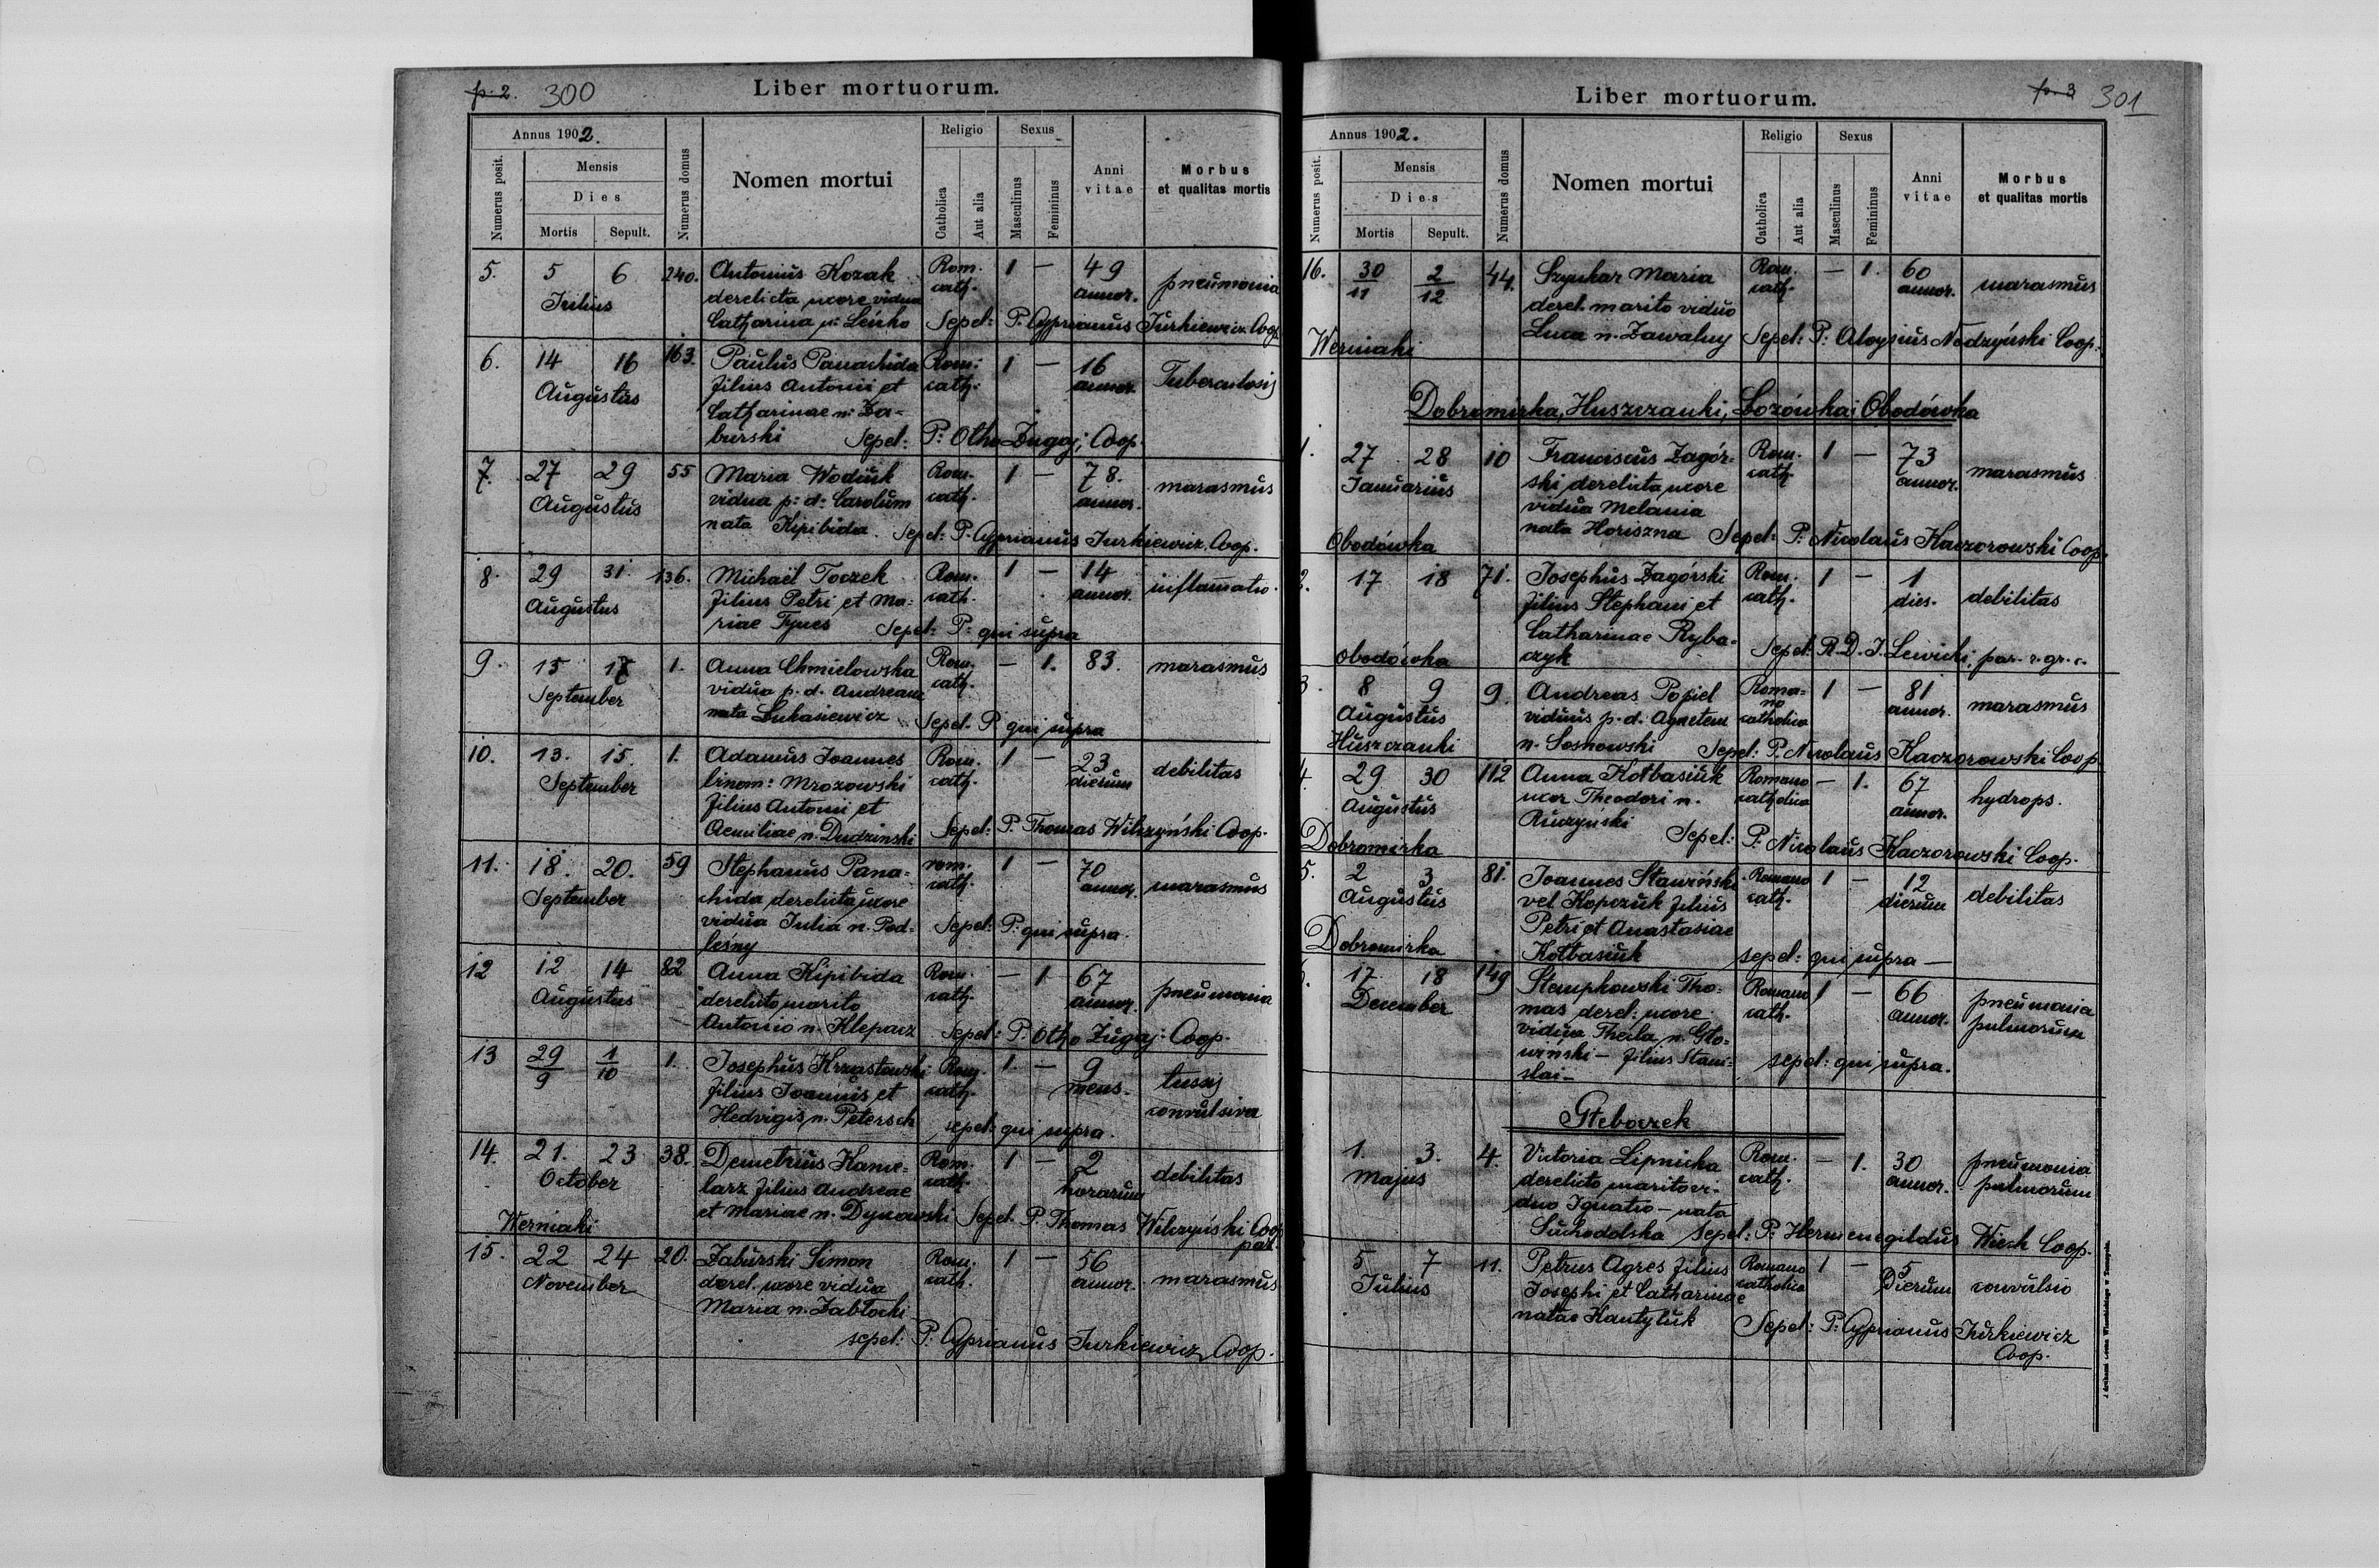 p. 2. 300
Liber mortuorum.
Annus 1902.
Numerus posit.
Mensis
Dies
Mortis Sepult.
Numerus domus
Nomen mortui
Religio
Catholica
Aut alia
Sexus
Masculinus
Femininus
Anni vitae
Morbus
et qualitas mortis
5. 5 6 240. Antonius Kozak Rom. 1 — 49 pneumonia
Julius derelicta uxore vidua cath. annor.
Catharina n. Leśko Sepel: P. Cyprianus Jurkiewicz Coop.
6. 14 16 163. Paulus Panachida Rom: 1 — 16 Tuberculosis
Augustus filius Antonii et cath: annor.
Catharinae n: Za-
burski Sepel: P: Otho Zugaj; Coop.
7. 27 29 55 Maria Wodiuk Rom. 1 — 78. marasmus
Augustus vidua p: d: Carolum cath. annor.
nata Kipibida. Sepel: P. Cyprianus Jurkiewicz, Coop.
8. 29 31. 136. Michaël Toczek Rom. 1 — 14 inflamatio.
Augustus filius Petri et Ma- cath. annor.
riae Tynes Sepel: P: qui supra
9. 15 17 1. Anna Chmielowska Rom. — 1. 83. marasmus
September vidua p. d. Andream cath.
nata Łukasiewicz Sepel. P. qui supra
10. 13. 15. 1. Adamus Joannes Rom. 1 — 23 debilitas
September binom: Mrozowski cath. dierum
filius Antonii et
Aemiliae n. Dudzinski Sepel: P. Thomas Wilczyński Coop.
11. 18. 20. 59 Stephanus Pana- rom. 1 — 70 marasmus
September chida derelicta uxore cath. annor.
vidua Julia n. Pod- Sepel: P. qui supra.
leśny
12 12 14 82 Anna Kipibida Rom. — 1 67 pneumonia
Augustus derelicto marito cath. annor.
Antonio n. Klepacz Sepel: P. Otho Zugaj: Coop.
13 29/9 1/10 1. Josephus Krzastowski Rom. 1. — 9 tussis
filius Joannis et cath. mens. convulsiva
Hedvigis n. Petersch sepel: qui supra.
14. 21. 23 38. Demetrius Kame- Rom. 1 — 2 debilitas
October larz filius Andreae cath. horarum
Werniaki et Mariae n. Dynowski Sepel. P. Thomas Wilczyński Coop
par.
15. 22 24 20. Zaburski Simon Rom. 1 — 56 marasmus
November derel. uxore vidua cath. annor.
Maria n. Zabłocki
sepel: P. Cyprianus Jurkiewicz, Coop.
p. 3 301
Liber mortuorum.
Annus 1902.
Numerus posit.
Mensis
Dies
Mortis Sepult.
Numerus domus
Nomen mortui
Religio
Catholica
Aut alia
Sexus
Masculinus
Femininus
Anni vitae
Morbus
et qualitas mortis
16. 30/11 2/12 44. Szynkar Maria Rom. — 1. 60 marasmus
derel. marito viduo cath. annor.
Werniaki Luca n. Zawalny Sepel: P: Aloysius Nodzyński Coop.
Dobromirka, Huszczanki, Łozówka i Obodówka
1. 27 28 10 Franciscus Zagór- Rom. 1 — 73 marasmus
Januarius ski derelicta uxore cath. annor.
vidua Melania
Obodówka nata Horiszna Sepel: P: Nicolaus Kaczorowski Coop.
2. 17 18 71. Josephus Zagórski Rom. 1 — 1 debilitas
filius Stephani et cath. dies.
Catharinae Ryba-
Obodówka czyk Sepel: R. D. J. Lewicki, par. r. gr. c.
3. 8 9 9. Andreas Popiel Roma- 1 — 81 marasmus
Augustus viduus p. d. Agnetem no catholica annor.
Huszczanki n. Sosnowski Sepel: P. Nicolaus Kaczorowski Coop
4. 29 30 112 Anna Kotbasiuk Romano — 1. 67 hydrops.
Augustus uxor Theodori n. catholica annor.
Dobromirka Ruczyński Sepel: P. Nicolaus Kaczorowski Coop.
5. 2 3 81. Joannes Stawiński Romano 1 — 12 debilitas
Augustus vel Kopczuk filius cath. dierum
Petri et Anastasiae
Dobromirka Kotbasiuk sepel: qui supra —
6. 17 18 149 Stempkowski Tho- Romano 1 — 66 pneumonia
December mas derel: uxore cath. annor. pulmorum
vidua Thecla n. Gło-
wiński — filius Stani- sepel: qui supra.
slai —
Głeboczek
1. 3. 4. Victoria Lipnicka Rom. — 1. 30 pneumonia
Majus derelicto marito vi- cath. annor. pulmorum
duo Ignatio — nata
Suchodolska Sepel: P: Hermenegildus Wiech Coop.
5 7 11. Petrus Agres filius Romano 1 — 5 convulsio
Julius Josephi et Catharinae catholica Dierum
natae Kantyluk Sepel: P: Cyprianus Jurkiewicz
Coop.